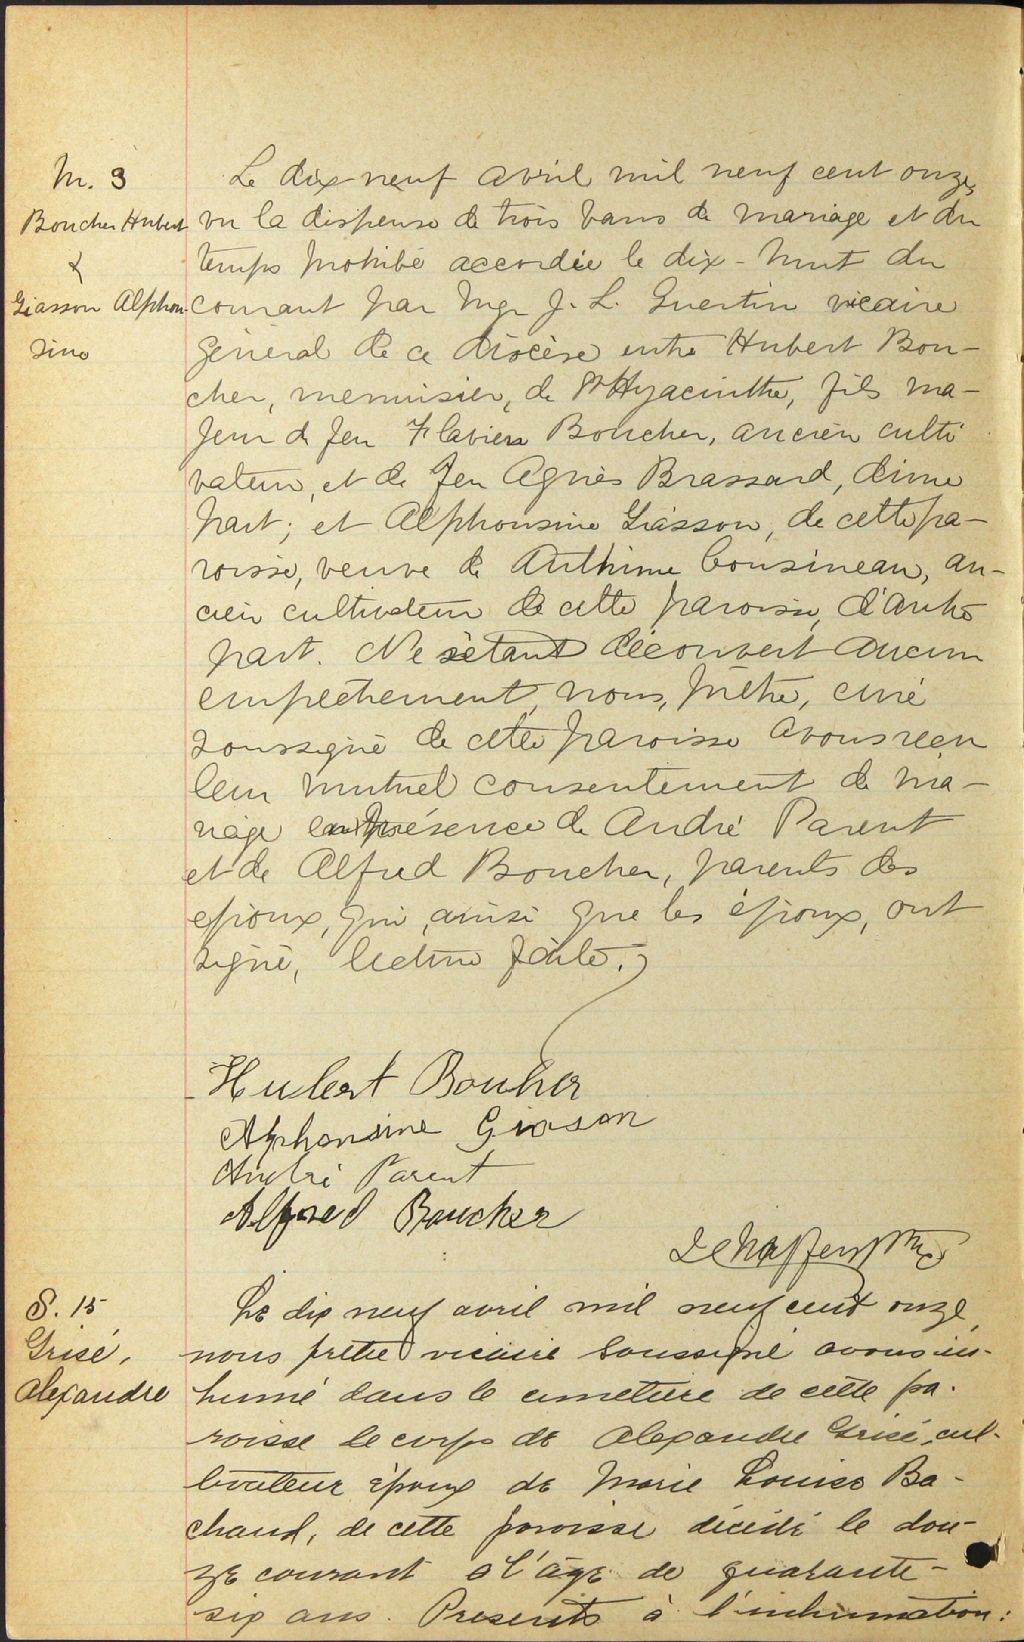 M. 3
Boucher Hubert
&
Giasson Alphon-
sine
Le dix-neuf avril mil neuf cent onze,
vu la dispense de trois bans de mariage et du
temps prohibé accordée le dix-huit du
courant par Mgr J. L. Guertin vicaire
général de ce diocèse entre Hubert Bou-
cher, menuisier, de St Hyacinthe, fils ma-
jeur de feu Flavien Boucher, ancien culti
vateur, et de feu Agnès Brassard, d'une
part; et Alphonsine Giasson, de cette pa-
roisse, veuve de Anthime Cousineau, an-
cien cultivateur de cette paroisse, d'autre
part. Ne s'étant découvert aucun
empêchement, nous, prêtre, curé
soussigné de cette paroisse avons reçu
leur mutuel consentement de ma-
riage en présence de André Parent
et de Alfred Boucher, parents des
époux, qui, ainsi que les époux, ont
signé, lecture faite.
Hubert Boucher
Alphonsine Giasson
André Parent
Alfred Boucher
S. 15
Grisé,
Alexandre
Le dix neuf avril mil neuf cent onze,
nous prêtre vicaire soussigné avons in-
humé dans le cimetière de cette pa-
roisse le corps de Alexandre Grisé, cul-
tivateur époux de Marie Louise Ba-
chand, de cette paroisse décédé le dou-
ze courant à l'âge de quarante-
six ans. Présents à l'inhumation: